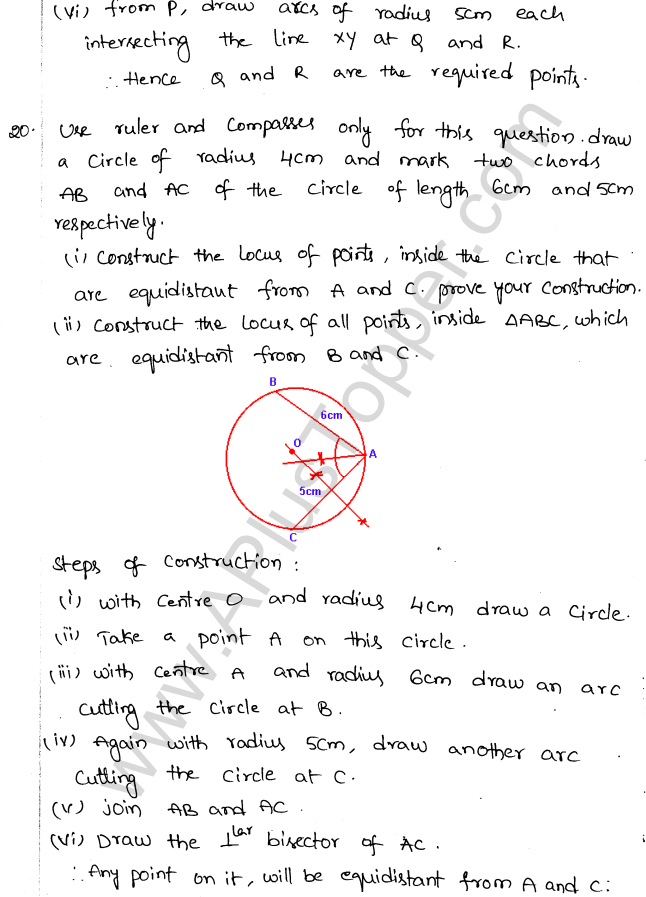 (vi) from P, draw arcs of radius 5cm each
intersecting the line xy at Q and R.
∴ Hence Q and R are the required points.
20. Use ruler and compasses only for this question. draw
a circle of radius 4cm and mark two chords
AB and AC of the circle of length 6cm and 5cm
respectively.
(i) construct the locus of points, inside the circle that
are equidistant from A and C. prove your construction.
(ii) construct the locus of all points, inside ΔABC, which
are equidistant from B and C.
B
6cm
O
A
5cm
C
steps of construction:
(i) with centre O and radius 4cm draw a circle.
(ii) Take a point A on this circle.
(iii) with centre A and radius 6cm draw an arc
cutting the circle at B.
(iv) Again with radius 5cm, draw another arc
cutting the circle at C.
(v) join AB and AC.
(vi) Draw the ⊥lar bisector of AC.
∴ Any point on it, will be equidistant from A and C:
www.APlusTopper.com